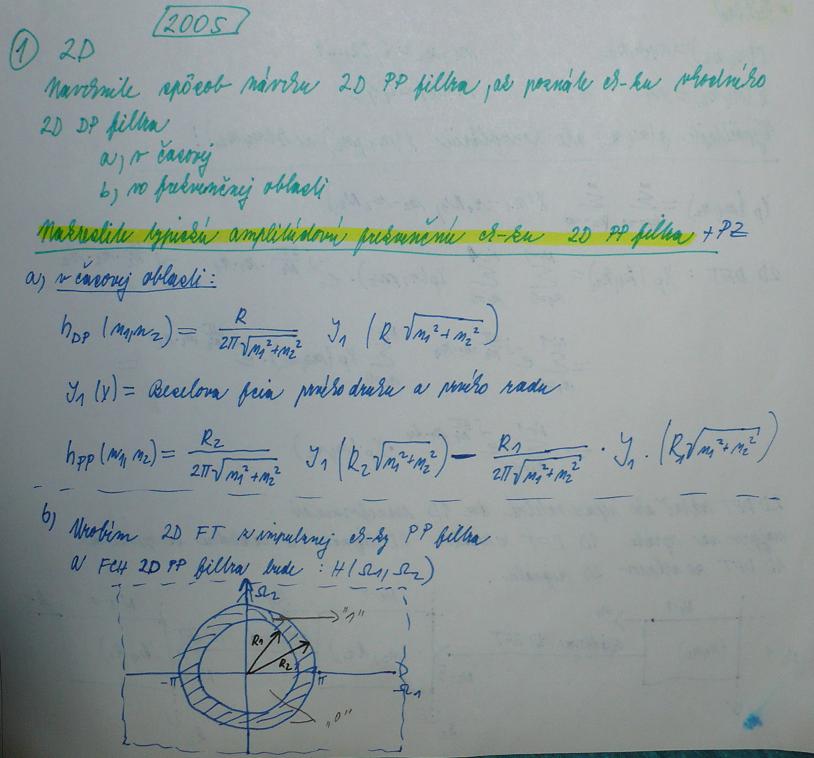 2005
① 2D
Navrhnite spôsob návrhu 2D PP filtra, ak poznáte ch-ku vhodného
2D DP filtra
a, v časovej
b, vo frekvenčnej oblasti
Nakreslite typickú amplitúdovú frekvenčnú ch-ku 2D PP filtra + PZ
a, v časovej oblasti:
h_DP (n1,n2) = R / (2π√(n1²+n2²)) J1 (R √(n1²+n2²))
J1 (x) = Beselova fcia prvého druhu a prvého radu
h_PP (n1, n2) = R2 / (2π√(n1²+n2²)) J1 (R2 √(n1²+n2²)) − R1 / (2π√(n1²+n2²)) · J1 · (R1 √(n1²+n2²))
b, Urobím 2D FT z impulznej ch-ky PP filtra
a FCH 2D PP filtra bude : H (Ω1, Ω2)
Ω2
"1"
R1
R2
-π
π
Ω1
"0"